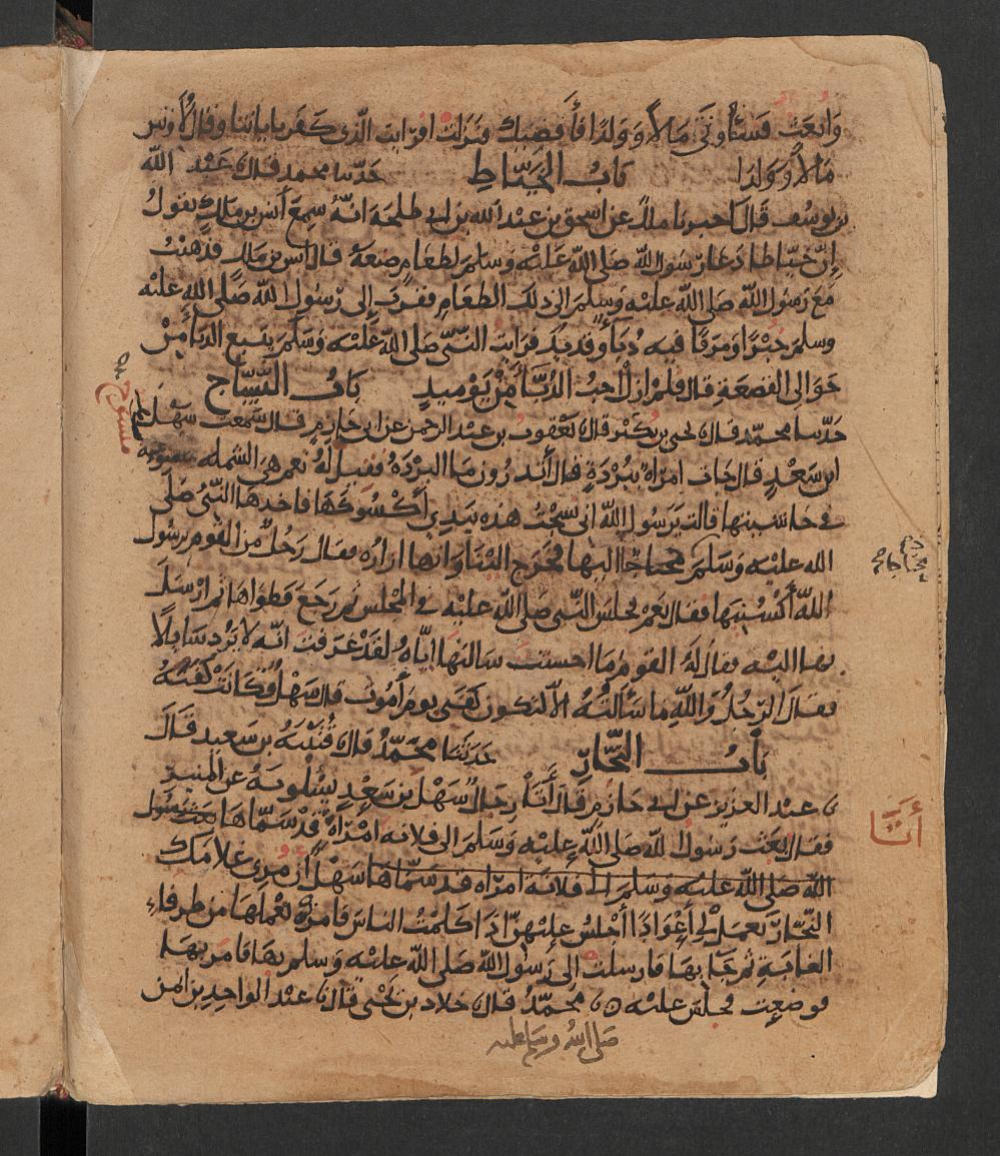 وابعث فستاوتى مالا وولدا فاقضيك فنزلت افرايت الذى كفر باياتنا وقال لاوتين
مالا وولدا باب الخياط حدثنا محمد قال عبد الله
بن يوسف قال اخبرنا ملك عن اسحق بن عبد الله بن ابى طلحة انه سمع انس بن ملك يقول
إن خياطا دعا رسول الله صلى الله عليه وسلم لطعام صنعه قال انس بن ملك فذهبت
مع رسول الله صلى الله عليه وسلم الى ذلك الطعام فقرب إلى رسول الله صلى الله عليه
وسلم خبزا ومرقا فيه دباء وقديد فرايت النبى صلى الله عليه وسلم يتبع الدباء من
حوالى القصعة قال فلم ازل احب الدباء من يوميذ باب النساج
حدثنا محمد قال يحيى بن بكير قال يعقوب بن عبد الرحمن عن ابى حازم قال سمعت سهل
ابن سعد قال جات امراة ببردة قال أتدرون ما البردة فقيل له نعم هى الشمله منسوجة
فى حاشيتها قالت يرسول الله انى نسجت هذه بيدى أكسوكها فاخدها النبى صلى
الله عليه وسلم محتاجا اليها فخرج الينا وانها ازاره فقال رجل من القوم يرسول
الله أكسنيها فقال نعم فجلس النبى صلى الله عليه فى المجلس ثم رجع فطواها ثم ارسل
بها اليه فقال له القوم ما احسنت سالتها اياه لقد عرفت انه لا يرد سايلا
فقال الرجل والله ما سألته الا لتكون كفنى يوم أموت قال سهل وكانت كفنه
باب النجار حدثنا محمد قال قتيبه بن سعيد قال
عبد العزيز عن ابى حازم قال أتا رجال سهل بن سعد يسلونه عن المنبر
فقال بعث رسول الله صلى الله عليه وسلم الى فلانه امراة قد سماها بعث رسول
الله صلى الله عليه وسلم الى فلانة امراه قد سماها سهل أن مرى غلامك
النجار يعمل لى أعوادا أجلس عليهن اذا كلمت الناس فامرته يعملها من طرفاء
الغابة ثم جا بها فارسلت الى رسول الله صلى الله عليه وسلم بها فامر بها
فوضعت فجلس عليه محمد قال خلاد بن يحيى قال عبد الواحد بن ايمن
صلى الله وسلم عليه
منسوج
محتاج
أتا